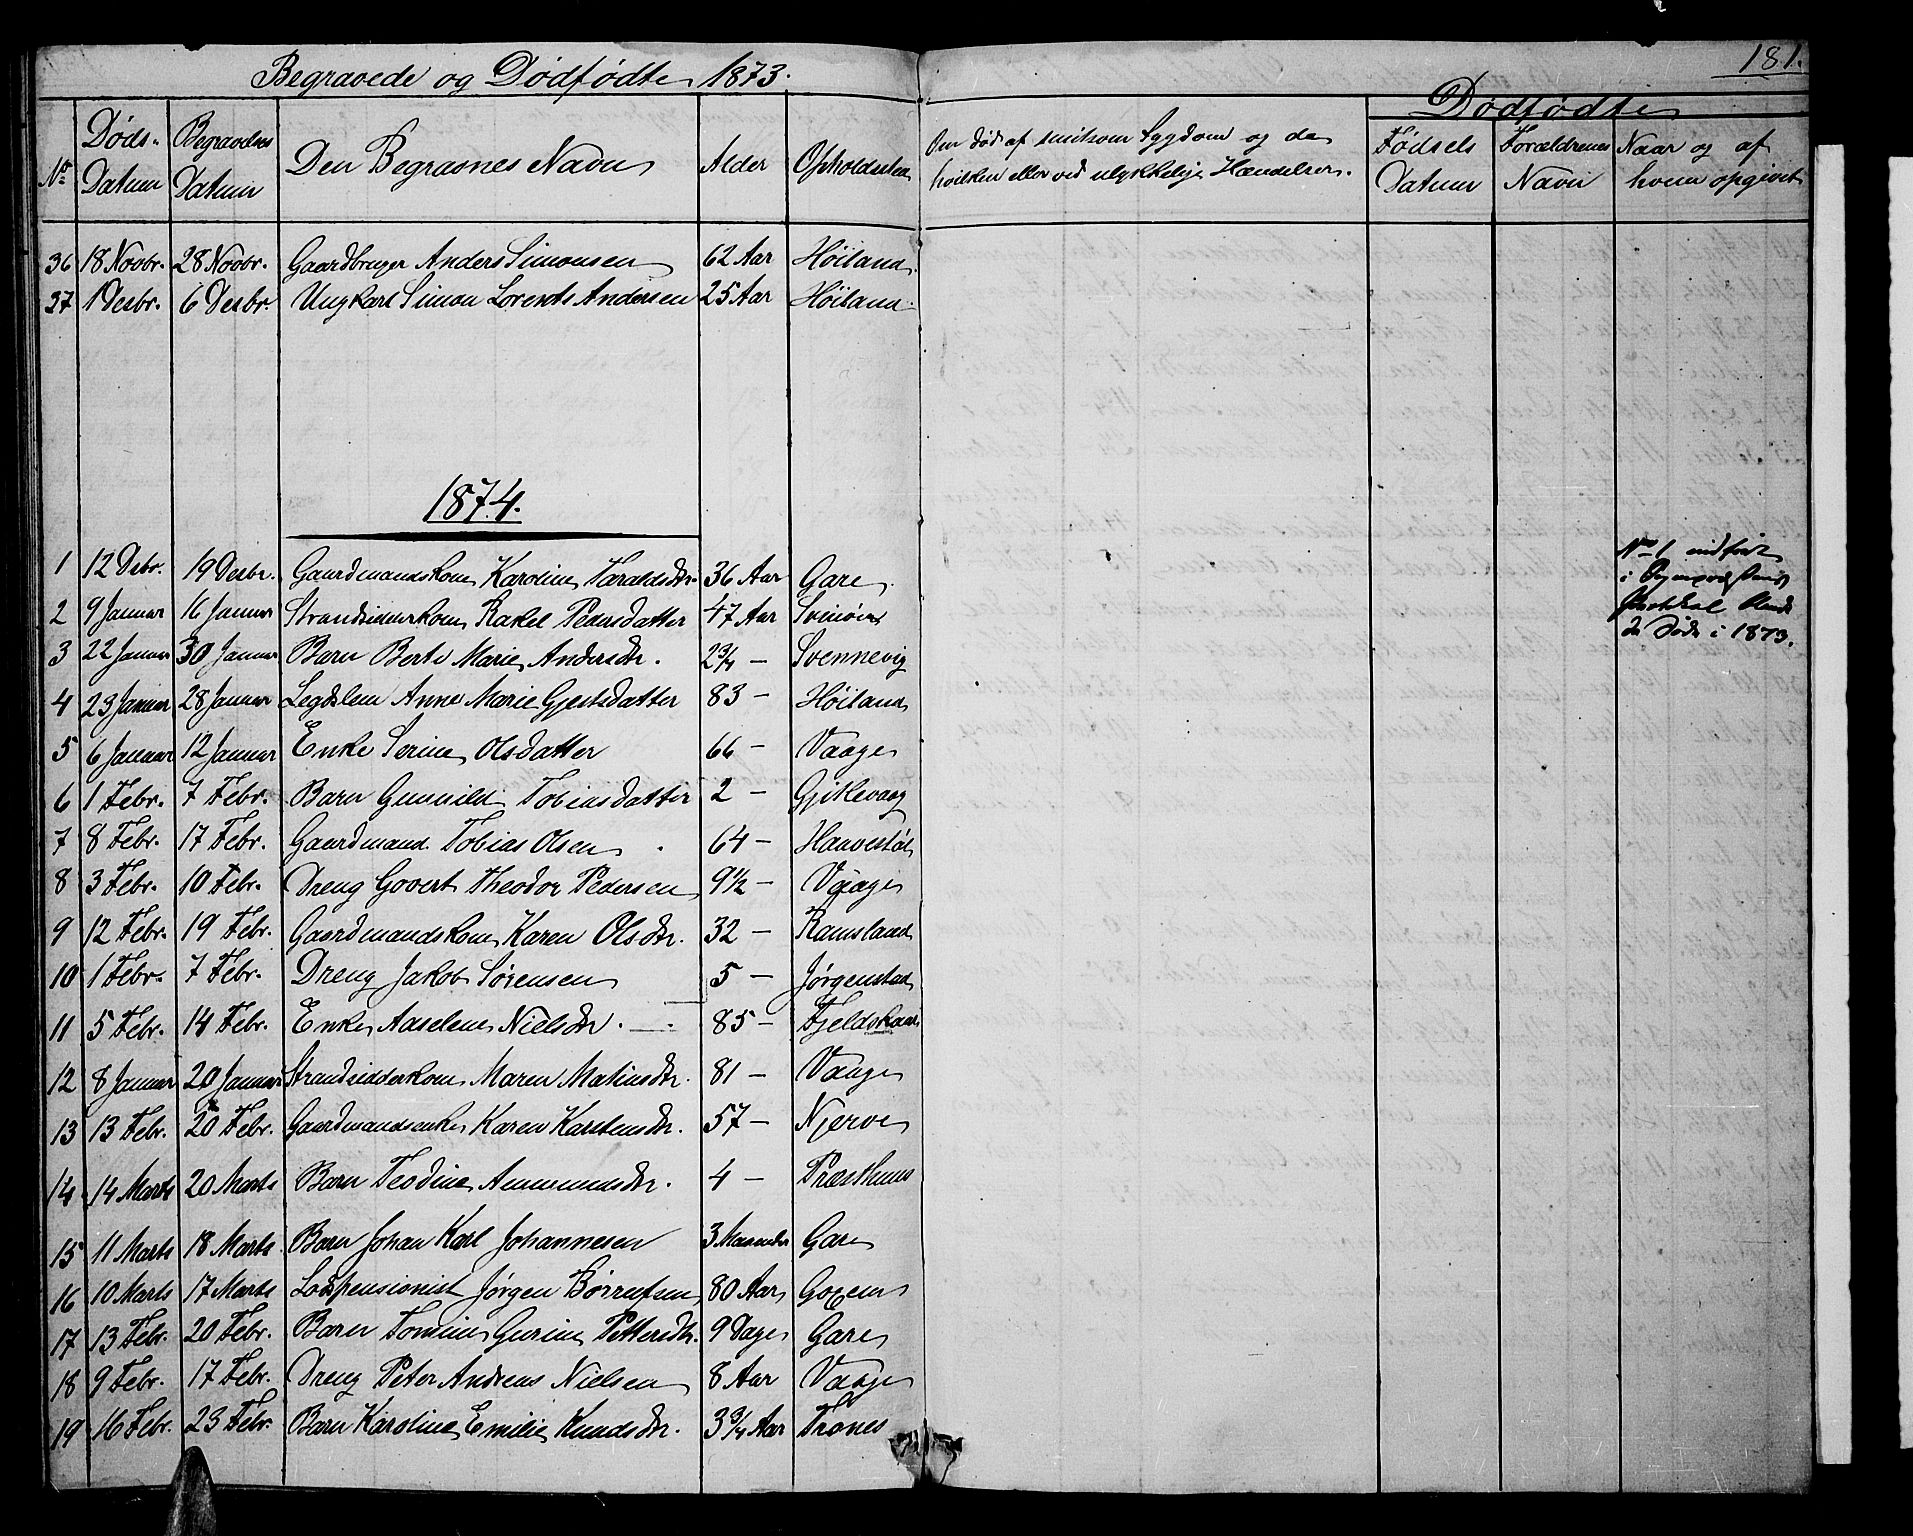 Begravede og Dødfødte 1873.
181.
No Døds-Datum Begravelses Datum Den Begravnes Navn Alder Opholdssted
Om død af smitsom Sygdom og da
hvilken eller ved ulykkelige Hændelser.
Dødfødte
Fødsels Datum Forældrenes Navn Naar og af hvem opgivet
36 18 Novbr. 28 Novbr. Gaardbruger Anders Simonsen 62 Aar Høiland
37 1 Desbr. 6 Desbr. Ungkarl Simon Lorents Andersen 25 Aar Høiland
1874.
1 12 Debr. 19 Desbr. Gaardmandskone Karoline Haraldsdtr. 36 Aar Gare
No 1 indført
i
Protokol blandt
de Døde i 1873.
2 9 Januar 16 Januar Strandsidderkone Rakel Pedersdatter 47 Aar Svinøen
3 22 Januar 30 Januar Barn Berte Marie Andersdtr. 2 3/4 — Svennevig
4 23 Januar 28 Januar Legdslem Anne Marie Gjertsdatter 83 — Høiland
5 6 Januar 12 Januar Enke Serine Olsdatter 66 — Vaage
6 1 Febr. 7 Febr. Barn Gunnild Tobiasdatter 2 — Gjiklevaag
7 8 Febr. 17 Febr. Gaardmand Tobias Olsen 64 — Haavestøl
8 3 Febr. 10 Febr. Dreng Govert Theodor Pedersen 9 1/2 — Vaage
9 12 Febr. 19 Febr. Gaardmandskone Karen Olsdtr. 32 — Ramsland
10 1 Febr. 7 Febr. Dreng Jakob Sørensen 5 — Jørgenstad
11 5 Febr. 14 Febr. Enke Aaselene Nielsdtr. 85 — Fjeldskaar
12 8 Januar 20 Januar Strandsidderkone Maren Matiasdtr. 81 — Vaage
13 13 Febr. 20 Febr. Gaardmandsenke Karen Karstensdtr. 57 — Njerve
14 14 Marts 20 Marts Barn Teodine Aanmundsdtr. 4 — Præsthuus
15 11 Marts 18 Marts Barn Johan Karl Johannesen 3 Maaneder Gare
16 10 Marts 17 Marts Lodspensionist Jørgen Børrufsen 80 Aar Goxem
17 13 Febr. 20 Febr. Barn Tomine Gurine Pettersdtr. 9 Dage Gare
18 9 Febr. 17 Febr. Dreng Peter Andreas Nielsen 8 Aar Vaage
19 16 Febr. 23 Febr. Barn Karoline Emilie Knudsdtr. 3 3/4 Aar Trones